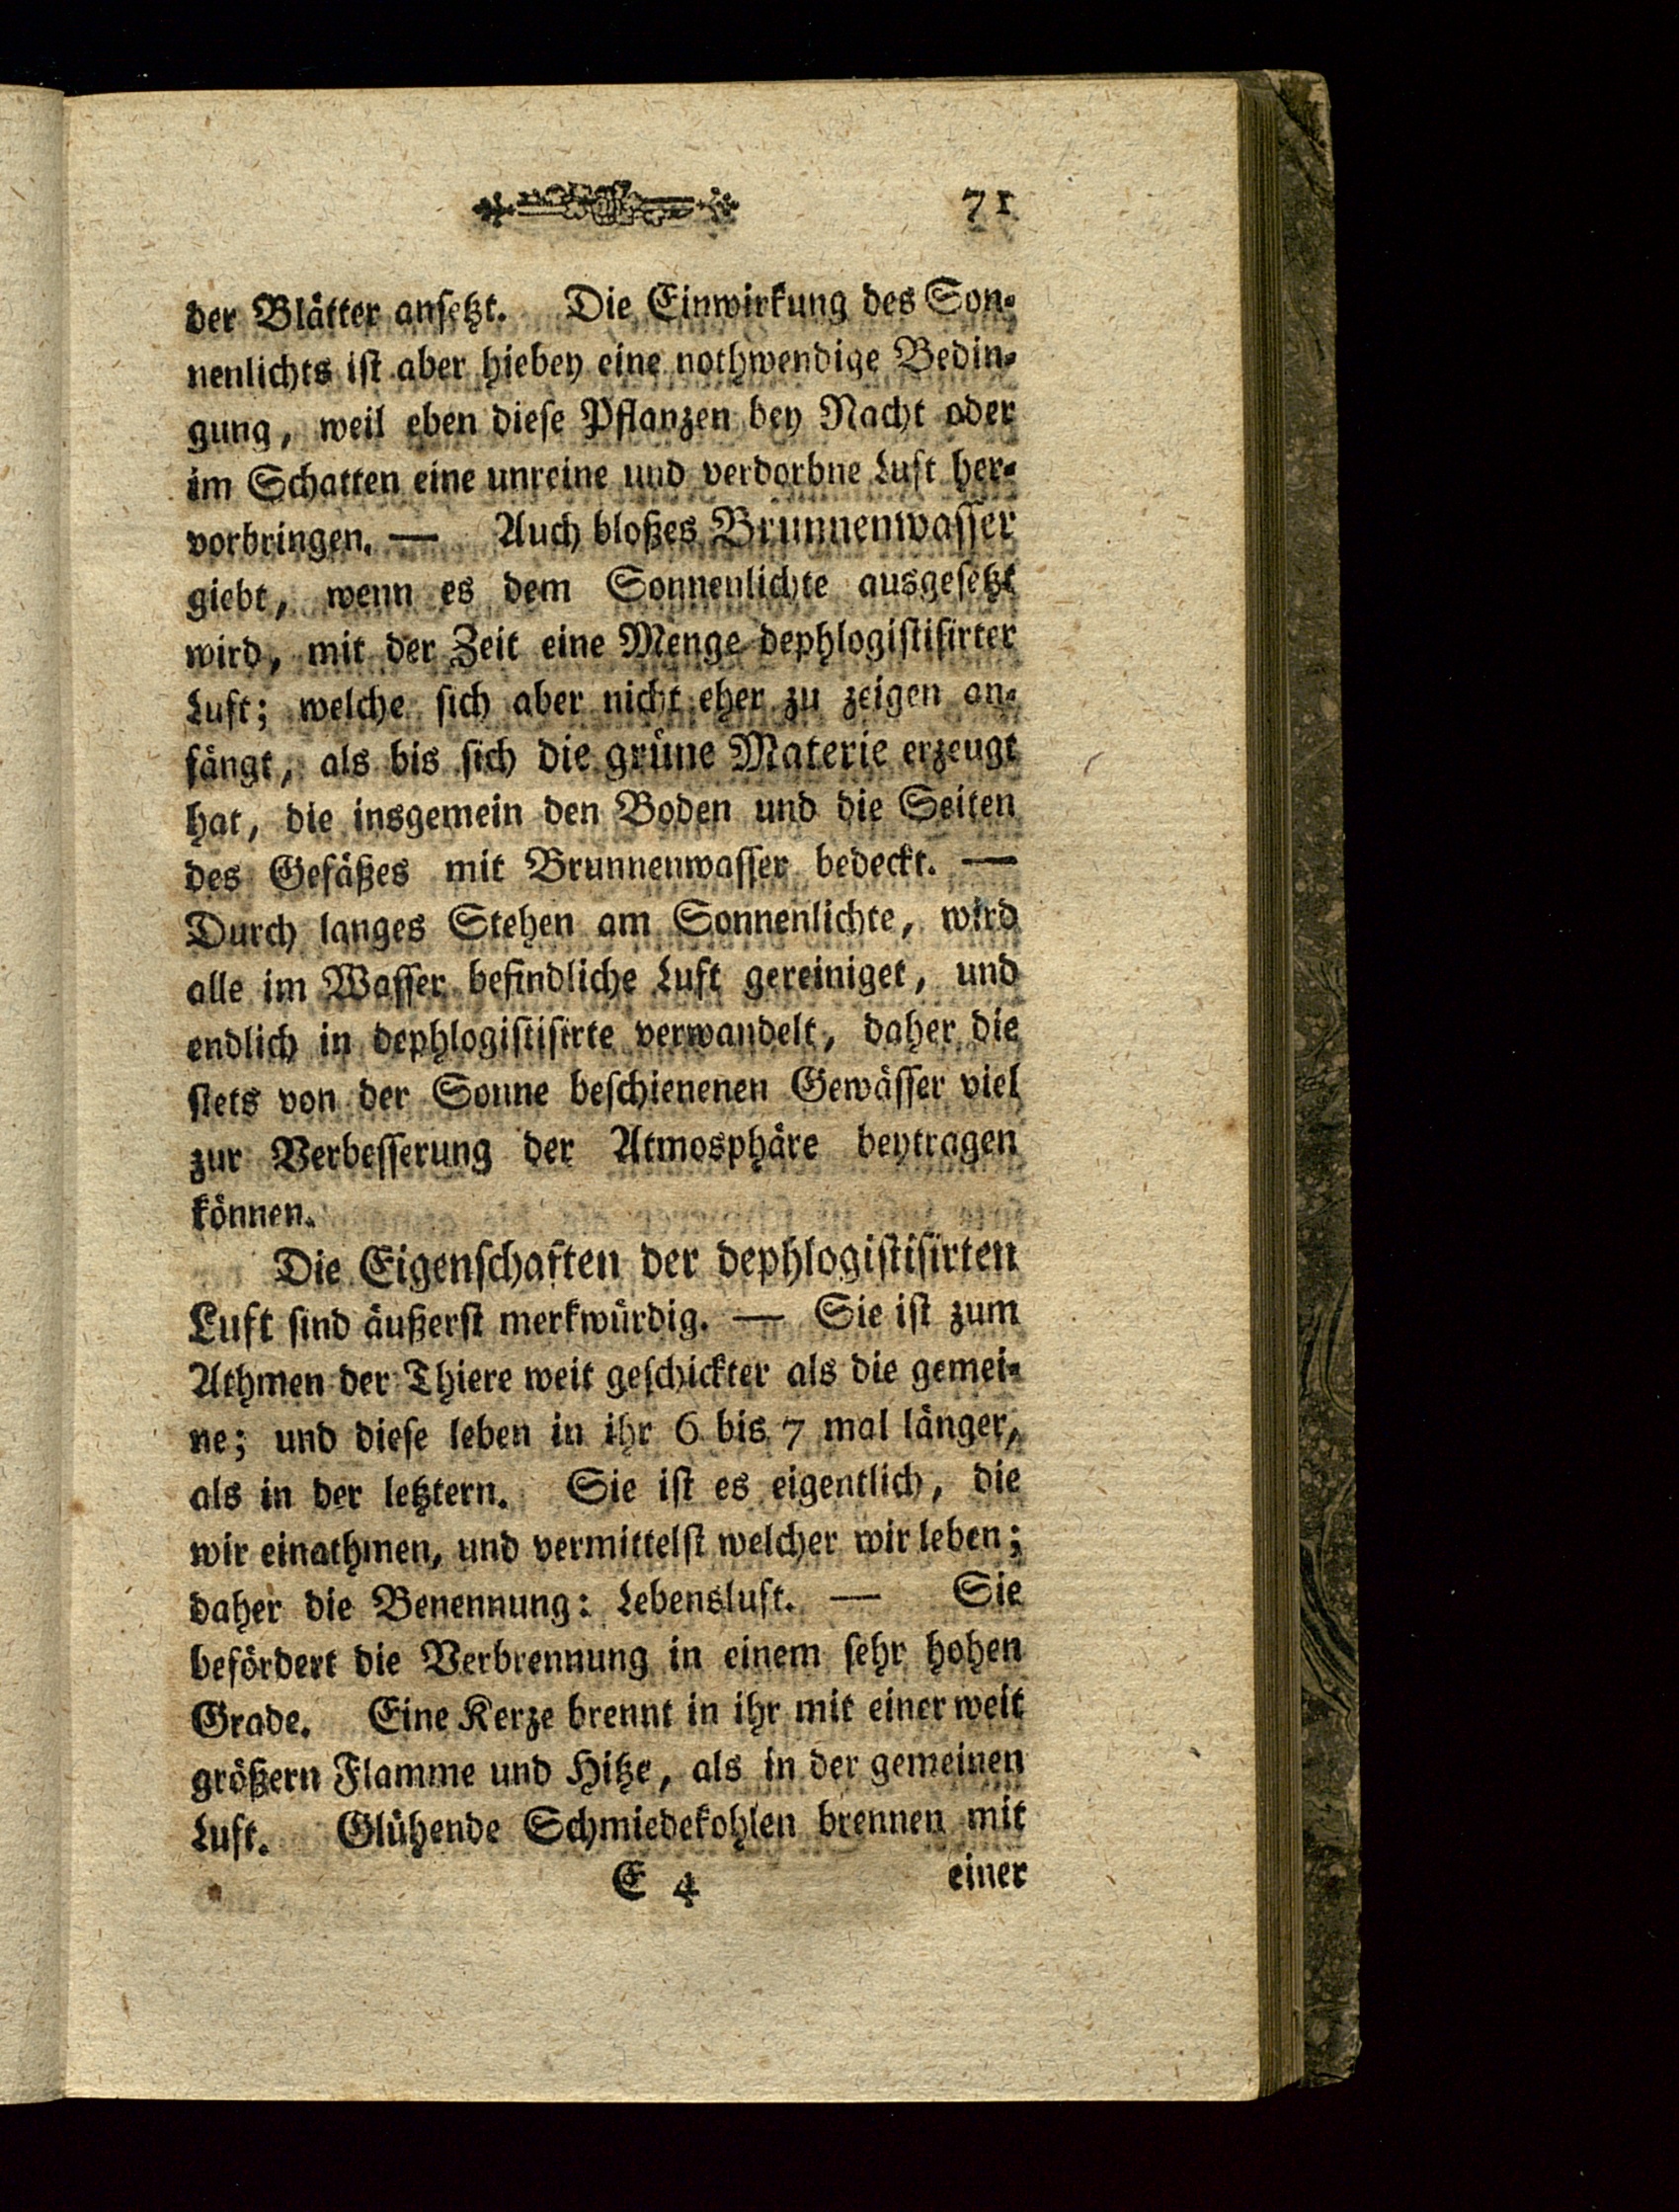 71
der Blätter ansetzt. Die Einwirkung des Son-
nenlichts ist aber hiebey eine nothwendige Bedin-
gung, weil eben diese Pflanzen bey Nacht oder
im Schatten eine unreine und verdorbne Luft her-
vorbringen. — Auch bloßes Brunnenwasser
giebt, wenn es dem Sonnenlichte ausgesetzt
wird, mit der Zeit eine Menge dephlogistisirter
Luft; welche sich aber nicht eher zu zeigen an-
fängt, als bis sich die grüne Materie erzeugt
hat, die insgemein den Boden und die Seiten
des Gefäßes mit Brunnenwasser bedeckt. —
Durch langes Stehen am Sonnenlichte, wird
alle im Wasser befindliche Luft gereiniget, und
endlich in dephlogistisirte verwandelt, daher die
stets von der Sonne beschienenen Gewässer viel
zur Verbesserung der Atmosphäre beytragen
können.
Die Eigenschaften der dephlogistisirten
Luft sind äußerst merkwürdig. — Sie ist zum
Athmen der Thiere weit geschickter als die gemei-
ne; und diese leben in ihr 6 bis 7 mal länger,
als in der letztern. Sie ist es eigentlich, die
wir einathmen, und vermittelst welcher wir leben;
daher die Benennung: Lebensluft. — Sie
befördert die Verbrennung in einem sehr hohen
Grade. Eine Kerze brennt in ihr mit einer weit
größern Flamme und Hitze, als in der gemeinen
Luft. Glühende Schmiedekohlen brennen mit
E 4 einer